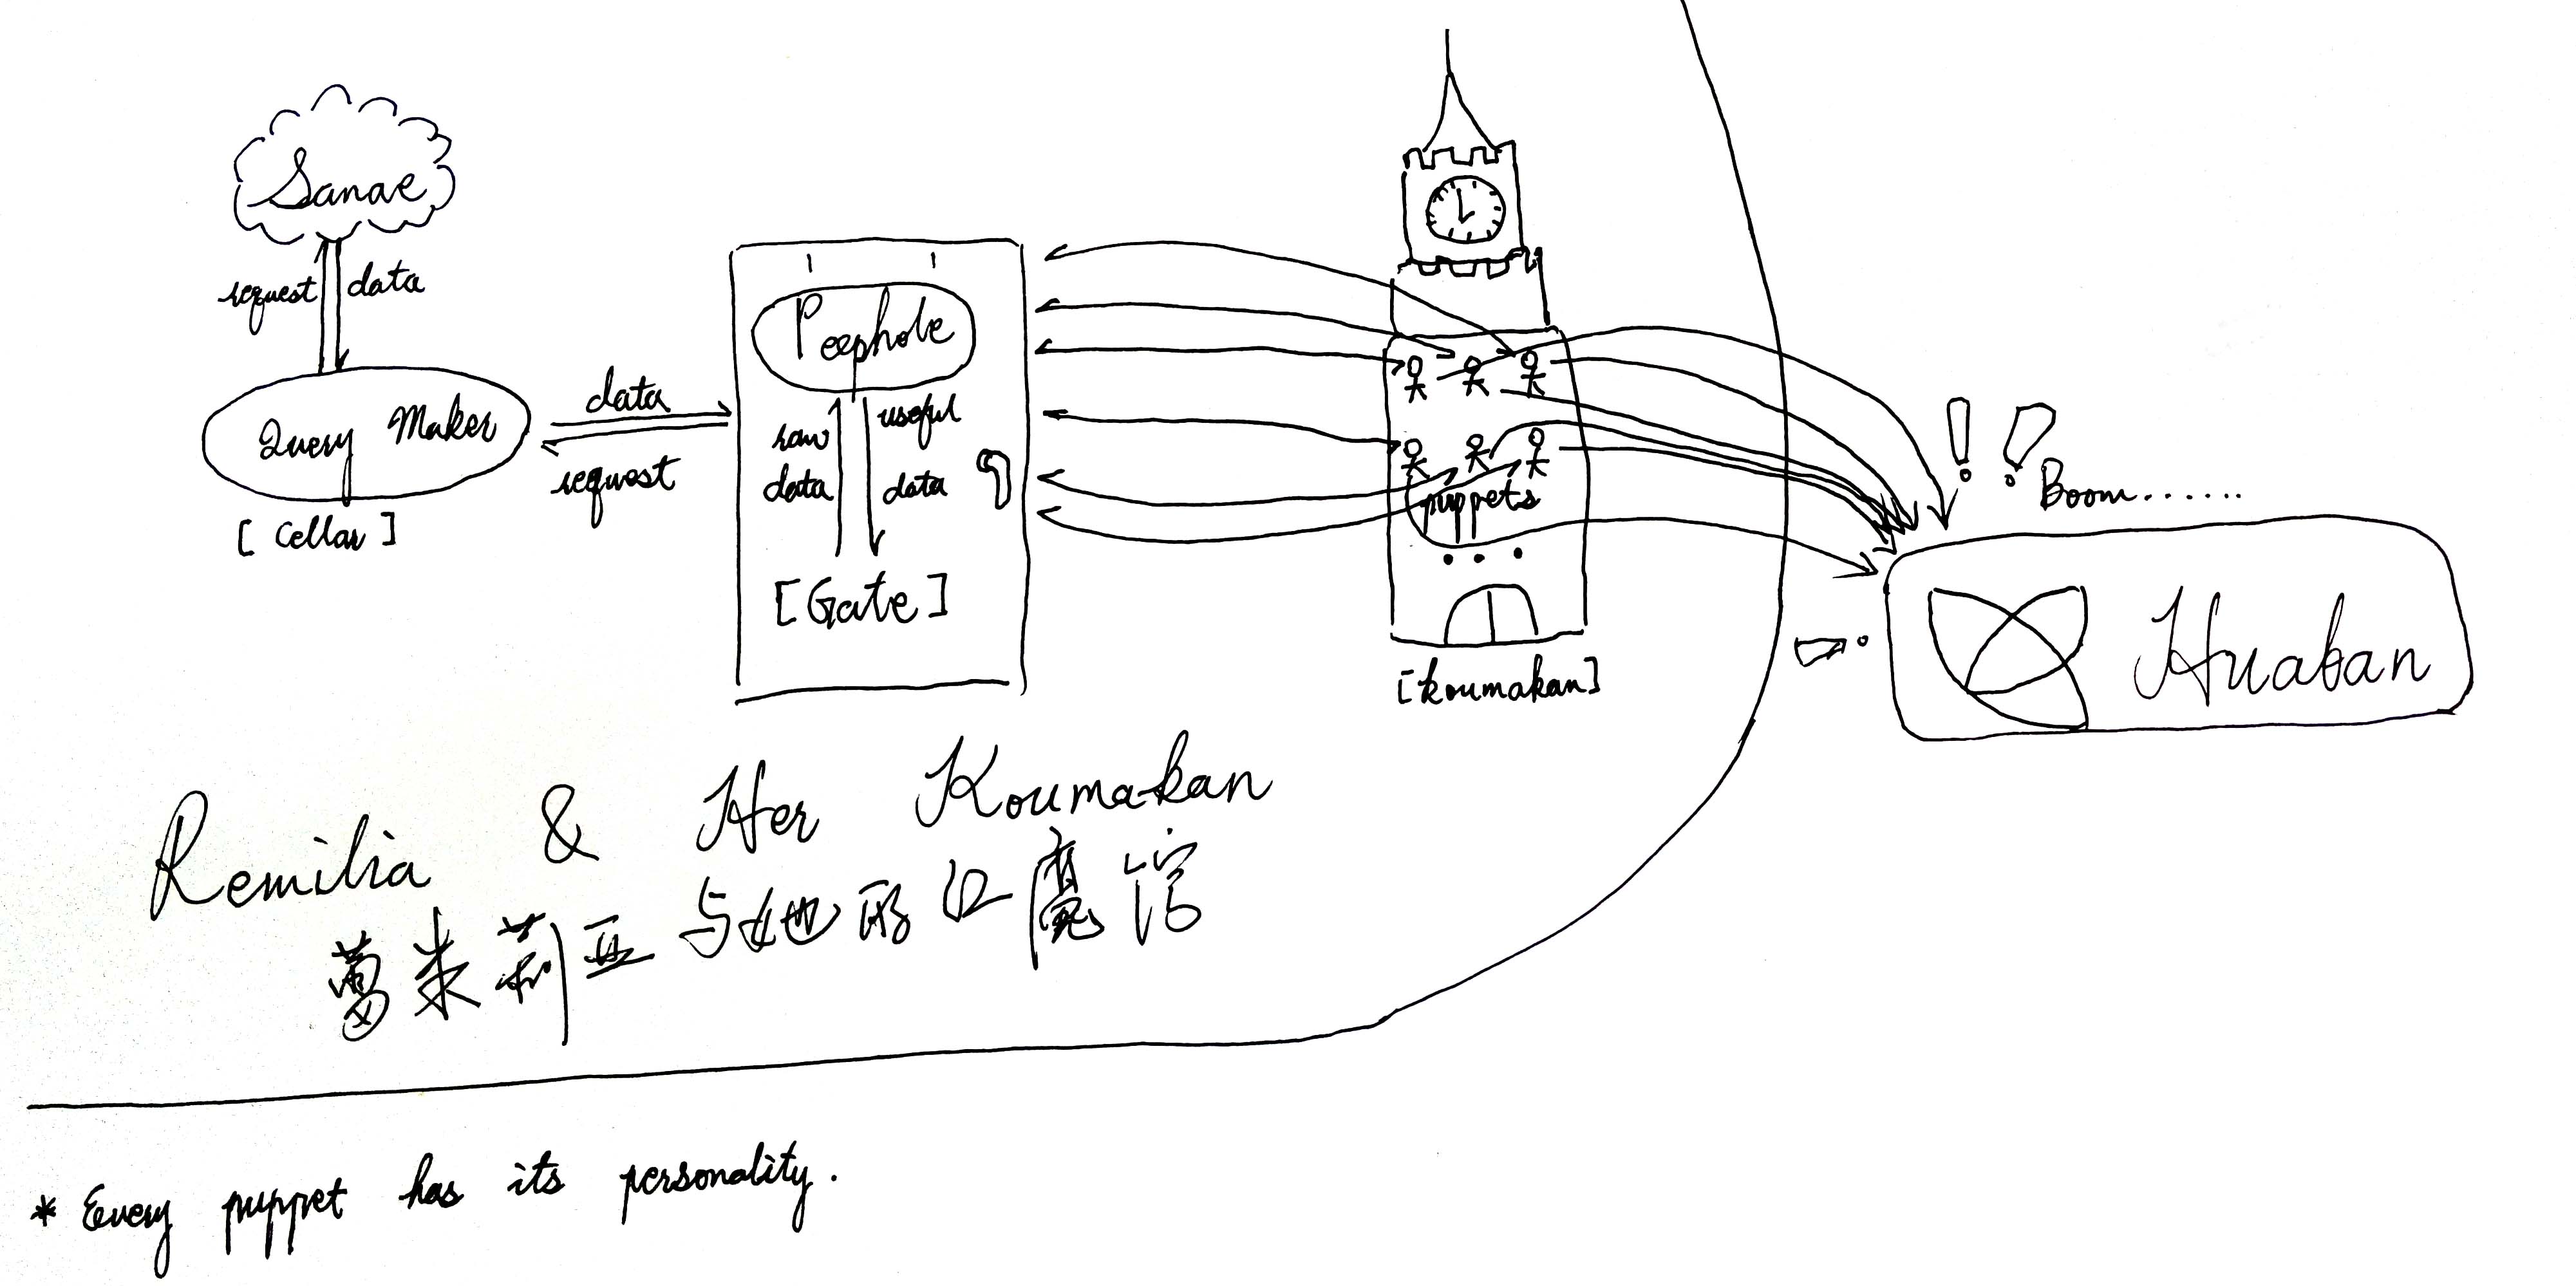 Sanae
request data
Query Maker
[Cellar]
data
request
Peephole
raw data
useful data
[Gate]
puppets
...
[koumakan]
!!
Boom......
Huaban
Remilia & Her Koumakan
蕾米莉亚与她的红魔馆
* Every puppet has its personality.